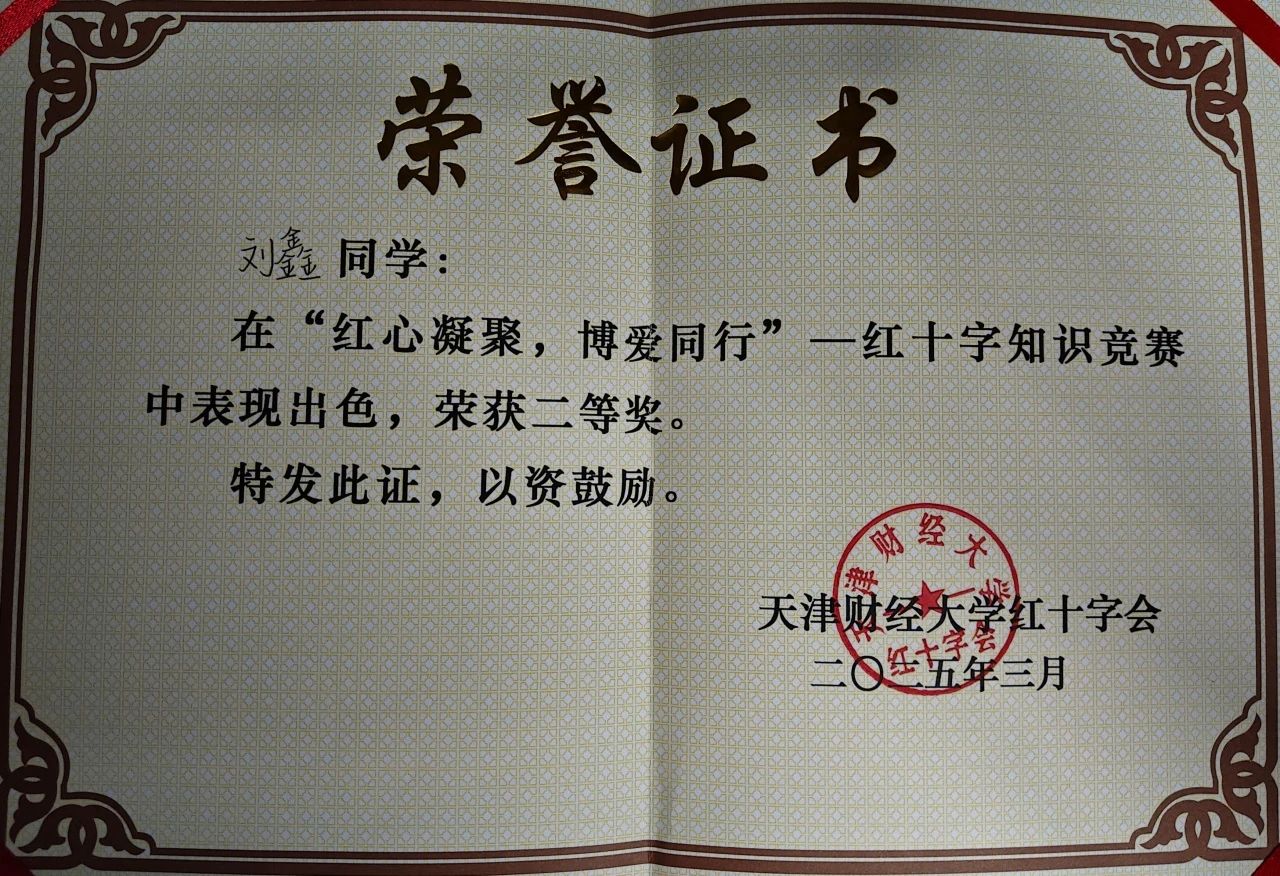 荣誉证书
刘鑫同学：
在“红心凝聚，博爱同行”—红十字知识竞赛
中表现出色，荣获二等奖。
特发此证，以资鼓励。
天津财经大学红十字会
二〇二五年三月
天津财经大学
红十字会